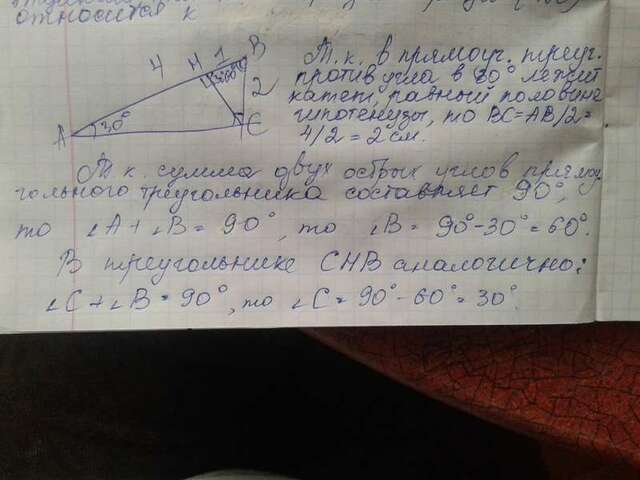 относится к
4 H 1 B
60°
2
A 30° C
Т.к. в прямоуг. треуг.
против угла в 30° лежит
катет, равный половине
гипотенузы, то BC=AB/2=
4/2=2 см.
Т.к. сумма двух острых углов прямоу
гольного треугольника составляет 90°,
то ∠A+∠B=90°, то ∠B=90°-30°=60°.
В треугольнике CHB аналогично:
∠C+∠B=90°, то ∠C=90°-60°=30°.